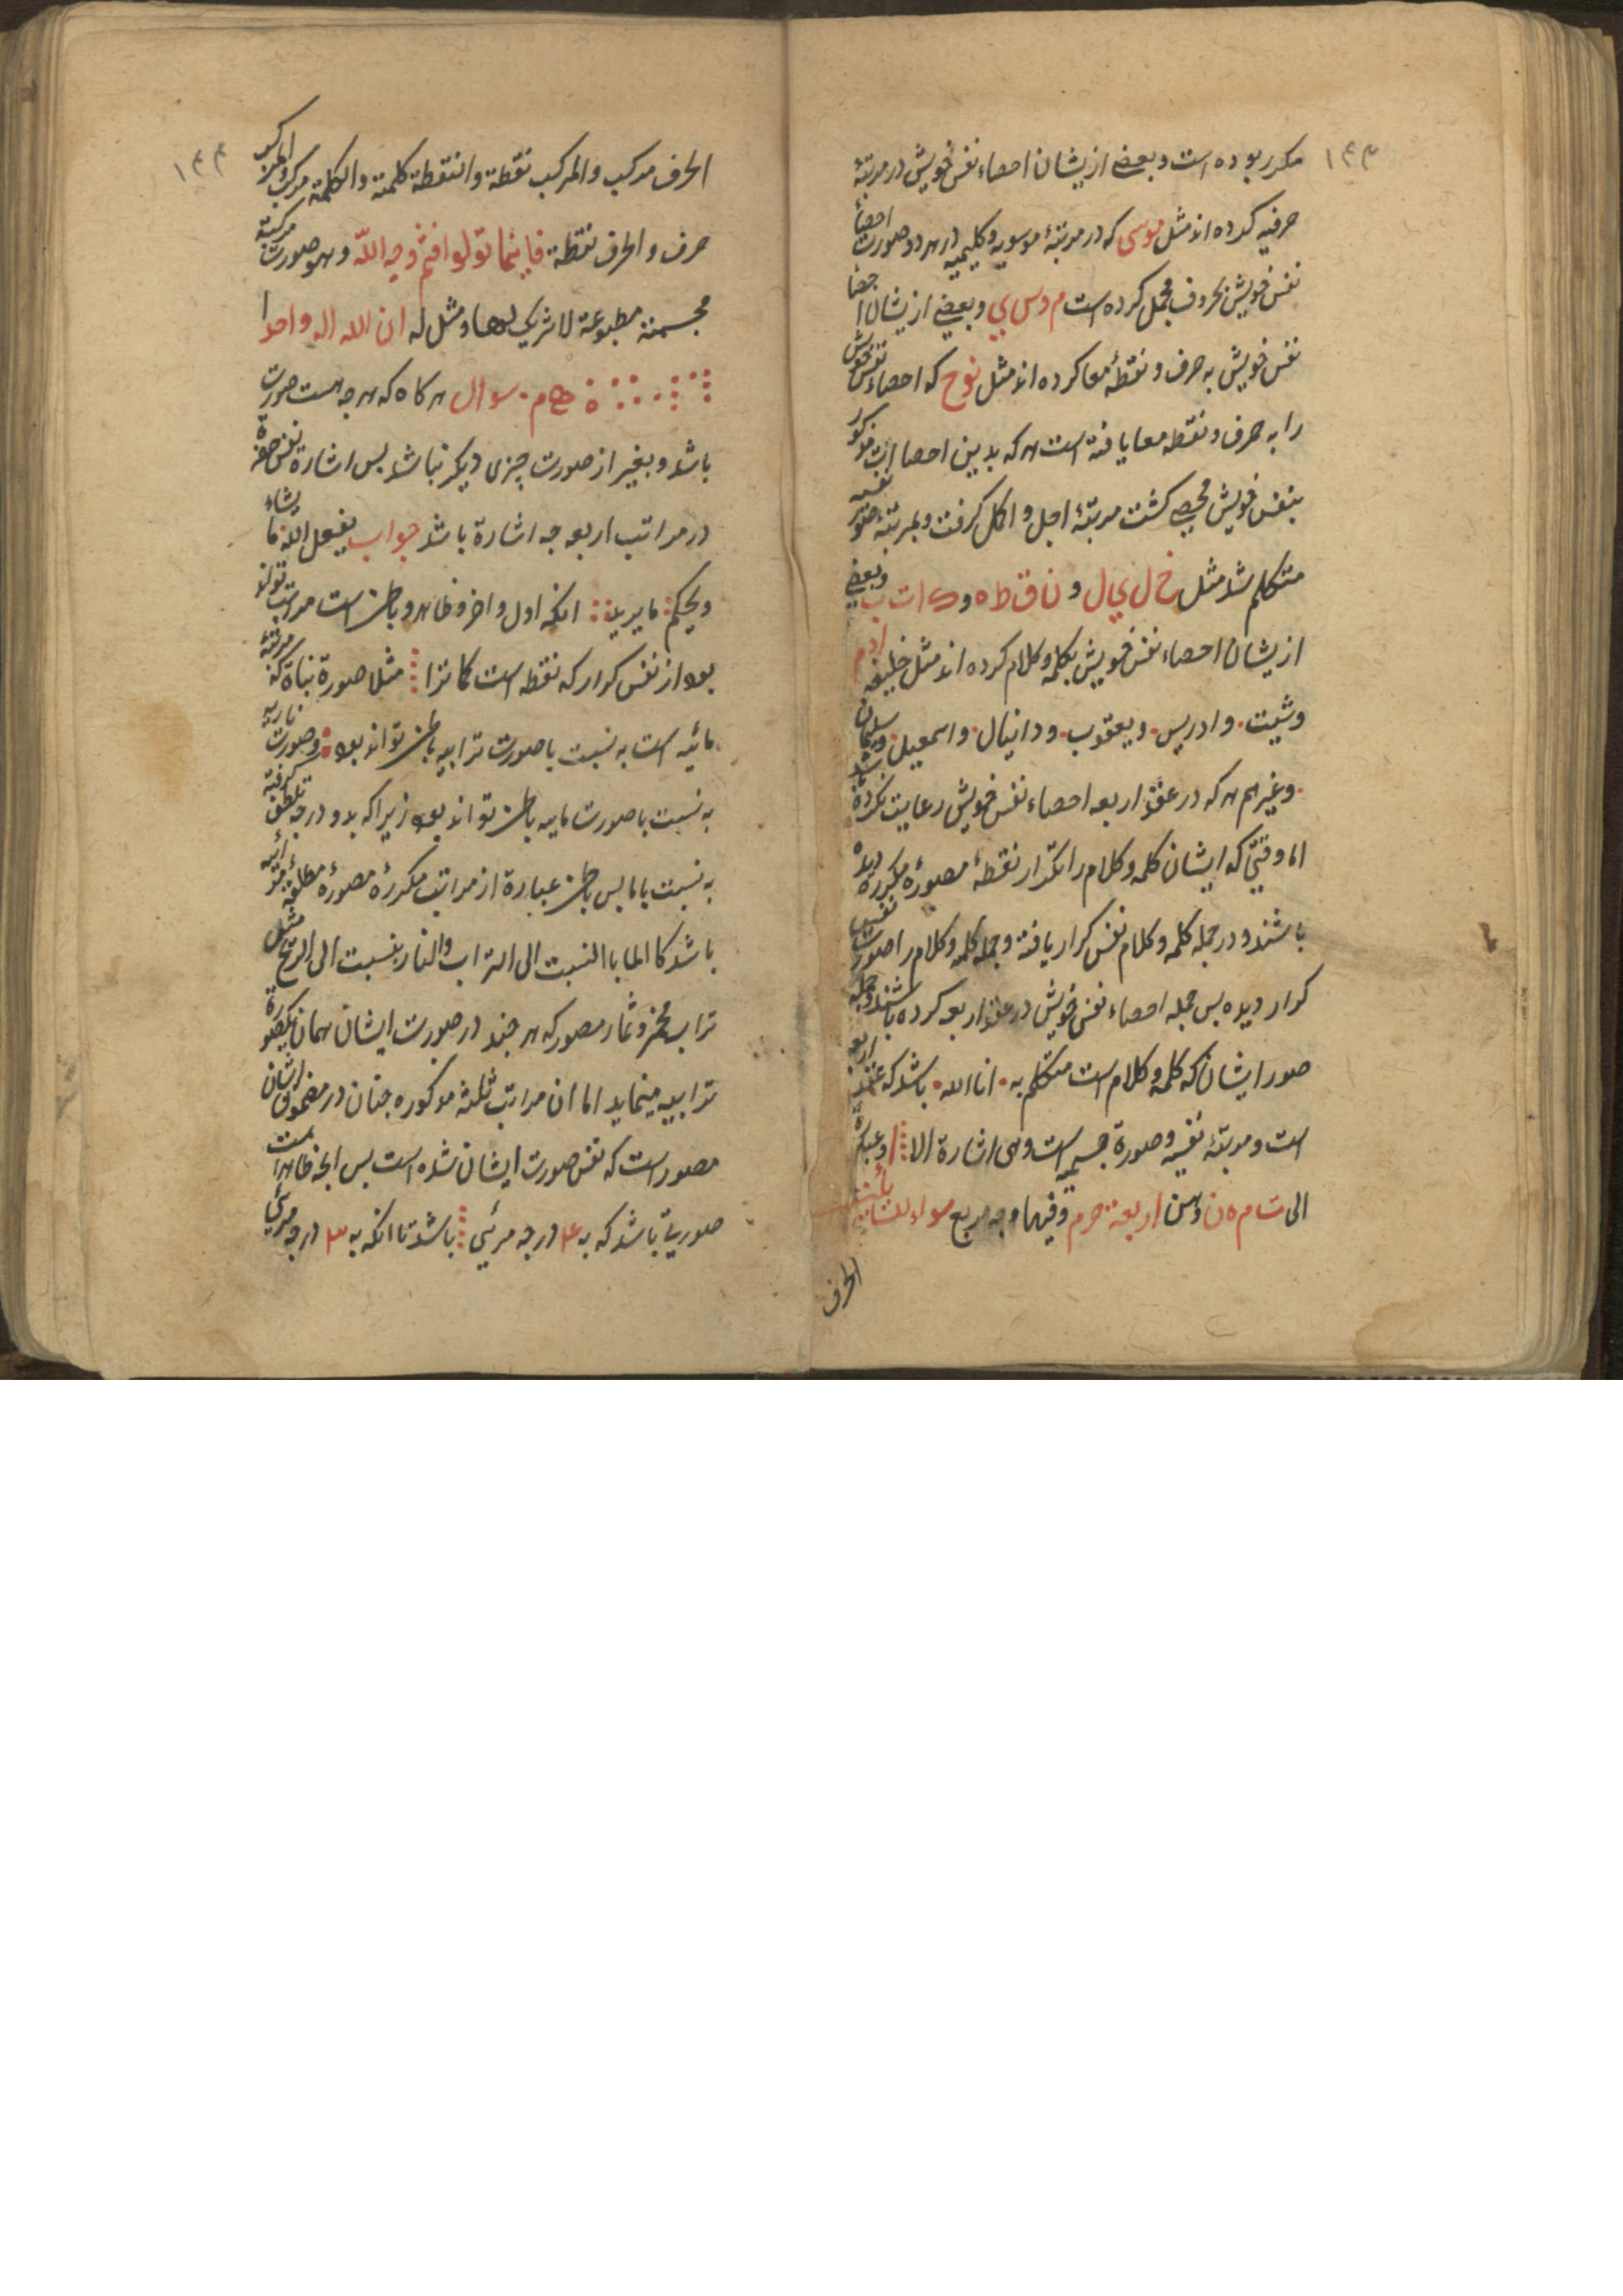 ۱۴۳
مکرر بوده است و بعضی ازیشان احصاء نفس خویش در مرتبهٔ
حرفیه کرده اند مثل موسی که در مرتبهٔ موسویه و کلیمیه در هر دو صورت احصاء
نفس خویش بحروف مجمل کرده است م و س ی و بعضی ازیشان احصا
نفس خویش به حرف و نقطه معا کرده اند مثل نوح که احصاء نفس خویش
را به حرف و نقطه معا یافته است هر که بدین احصاات مذکور
بنفس خویش محیی کشت مرتبهٔ اجل و اکمل کرفت و بمرتبهٔ
متکلم شد مثل خ ل ی ل و ن ا ق ط ه و ک ا ت ب وبعضی
ازیشان احصاء نفس خویش بکلمه و کلام کرده اند مثل خلیفه ادم
وشیت. وادریس. ویعقوب. ودانیال. واسمعیل. وسلیمان
. وغیرهم هر که در عقد اربعه احصاء نفس خویش رعایت نکرده
اما وقتی که ایشان کلمه و کلام را تکرار نقطهٔ مصورهٔ مکرره دیده
باشند و در جمله کلمه و کلام نفس کرار یافته و جمله کلمه و کلام را صورت نفس
کرار دیده بس جمله احصاء نفس خویش در عقد اربعه کرده باشند وجمله
صور ایشان که کلمه و کلام است متکلم به. انا الله. باشد که عقد اربعه
است و مرتبهٔ نفسیه و صورة جسمیه است وهی اشارة الا
الی ت م ه ن وهن اربعة حرم وفیها وجه مربع سواء للسائلین
الحرف
۱۴۴
الحرف مرکب والمرکب نقطة والنقطة کلمة والکلمة مرکب والمرکب
حرف والحرف نقطة فاینما تولوا فثم وجه الله وهو صورت مرکبة
مجسمة مطبوعة لا شریک لها ومثل له ان الله اله واحدا
سوال هرکاه که هرجه هست صورت
باشد و بغیر از صورت چیزی دیکر نباشد بس اشارة
در مراتب اربعه جه اشارة باشد جواب یفعل الله ما یشاء
ویحکم ما یرید انکه اول و اخر و ظاهر و باطن است مراتب تواند
بود از نفس کرار که نقطه است کما ترا مثلا صورة نباة که مرتبهٔ
مائیه است به نسبت با صورت ترابیه باطن تواند بود وصورت ناریه
به نسبت با صورت مایه باطن تواند بود زیرا که بدو درجه تلطف کرفته
به نسبت با ما بس باطن عبارة از مراتب مکررهٔ مصورهٔ
باشد کالما بالنسبت الی التراب والنار بنسبت الی الریح مثل
تراب ومخبز وثمار مصور که هر جند در صورت ایشان همان یکصورة
ترابیه مینماید اما ان مراتب ثلثه مذکوره جنان در ایشان
مصور است که نفس صورت ایشان شده است بس انجه ظاهر است
صوریة باشد که به ۴ درجه مرئی باشد تا انکه به ۳ درجه مرئی